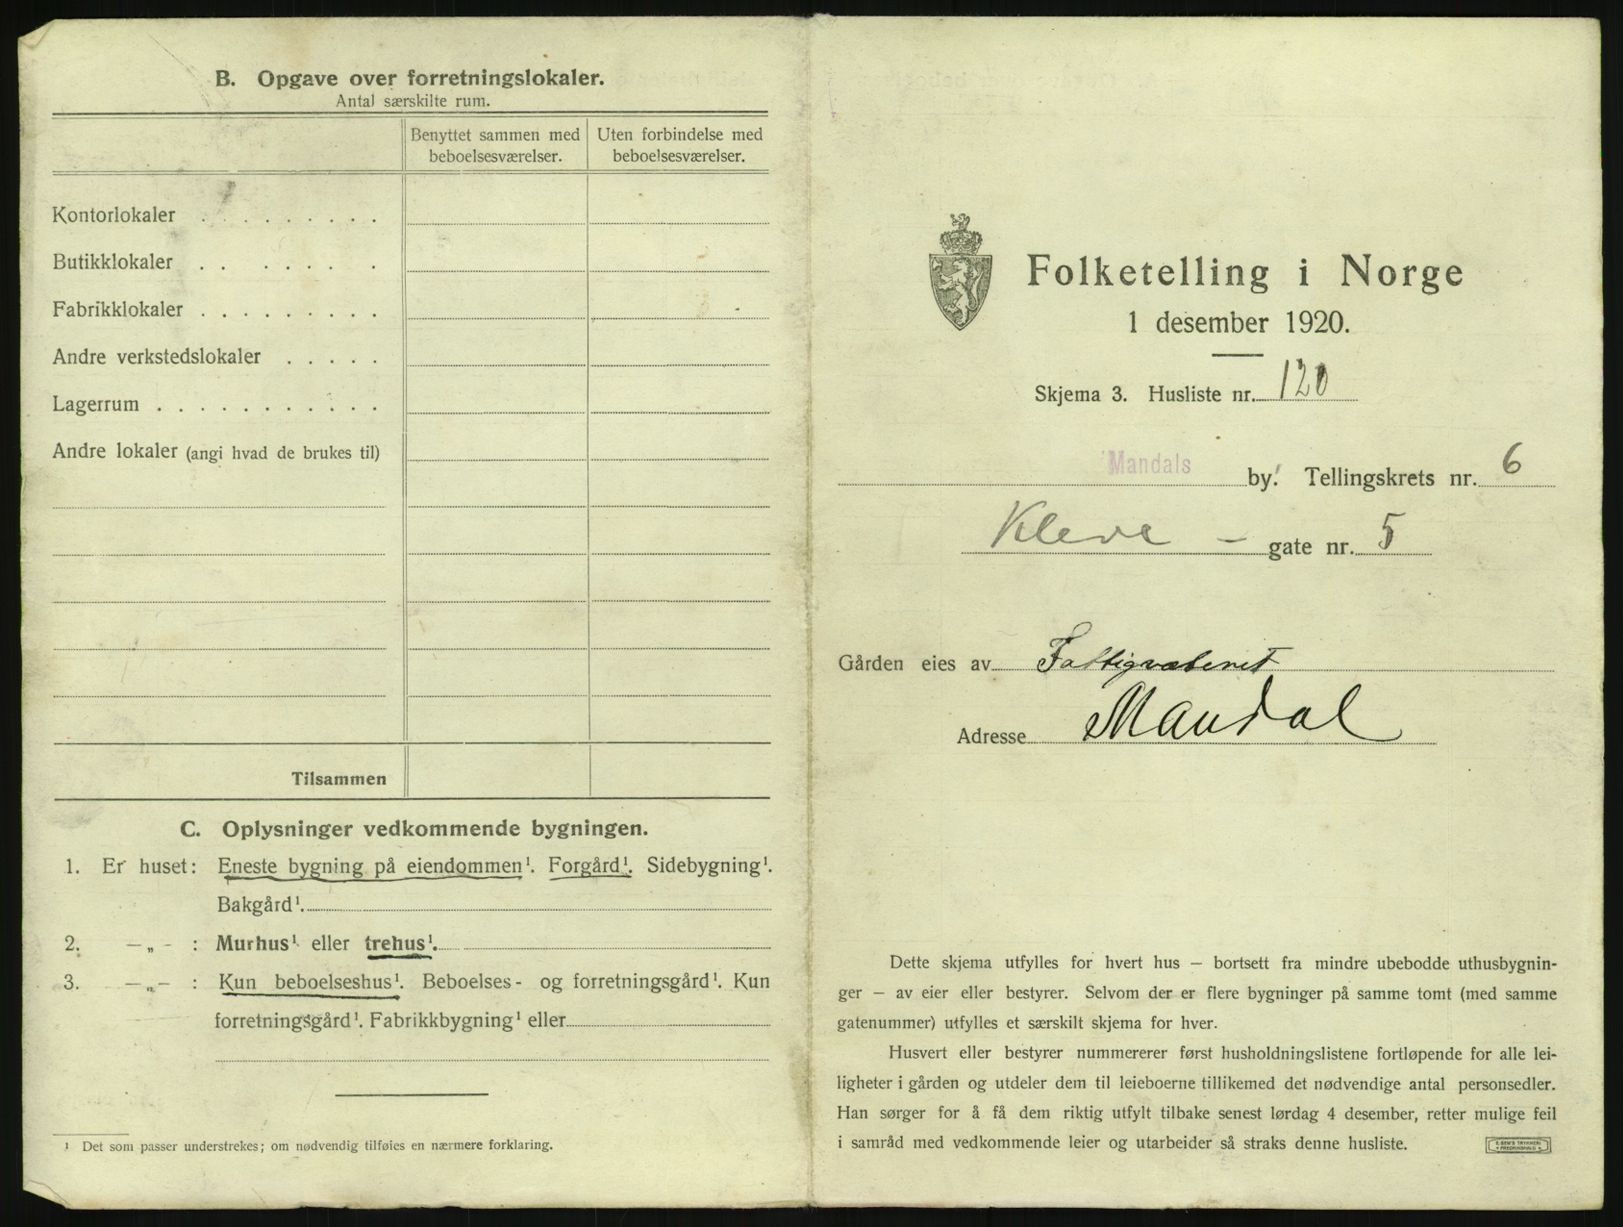 B. Opgave over forretningslokaler.
Antal særskilte rum.
Benyttet sammen med beboelsesværelser.
Uten forbindelse med beboelsesværelser.
Kontorlokaler . . . . . . . . .
Butikklokaler . . . . . . . .
Fabrikklokaler . . . . . . . . .
Andre verkstedslokaler . . . . .
Lagerrum . . . . . . . . . . .
Andre lokaler (angi hvad de brukes til)
Tilsammen
C. Oplysninger vedkommende bygningen.
1. Er huset: Eneste bygning på eiendommen¹. Forgård¹. Sidebygning¹.
Bakgård¹.
2. —„— : Murhus¹ eller trehus¹.
3. —„— : Kun beboelseshus¹. Beboelses- og forretningsgård¹. Kun
forretningsgård¹. Fabrikkbygning¹ eller
¹ Det som passer understrekes; om nødvendig tilføies en nærmere forklaring.
Folketelling i Norge
1 desember 1920.
Skjema 3. Husliste nr. 120
Mandals by. Tellingskrets nr. 6
Kleve - gate nr. 5
Gården eies av Fattigvæsenet
Adresse Mandal
Dette skjema utfylles for hvert hus — bortsett fra mindre ubebodde uthusbygnin-
ger — av eier eller bestyrer. Selvom der er flere bygninger på samme tomt (med samme
gatenummer) utfylles et særskilt skjema for hver.
Husvert eller bestyrer nummererer først husholdningslistene fortløpende for alle lei-
ligheter i gården og utdeler dem til leieboerne tillikemed det nødvendige antal personsedler.
Han sørger for å få dem riktig utfylt tilbake senest lørdag 4 desember, retter mulige feil
i samråd med vedkommende leier og utarbeider så straks denne husliste.